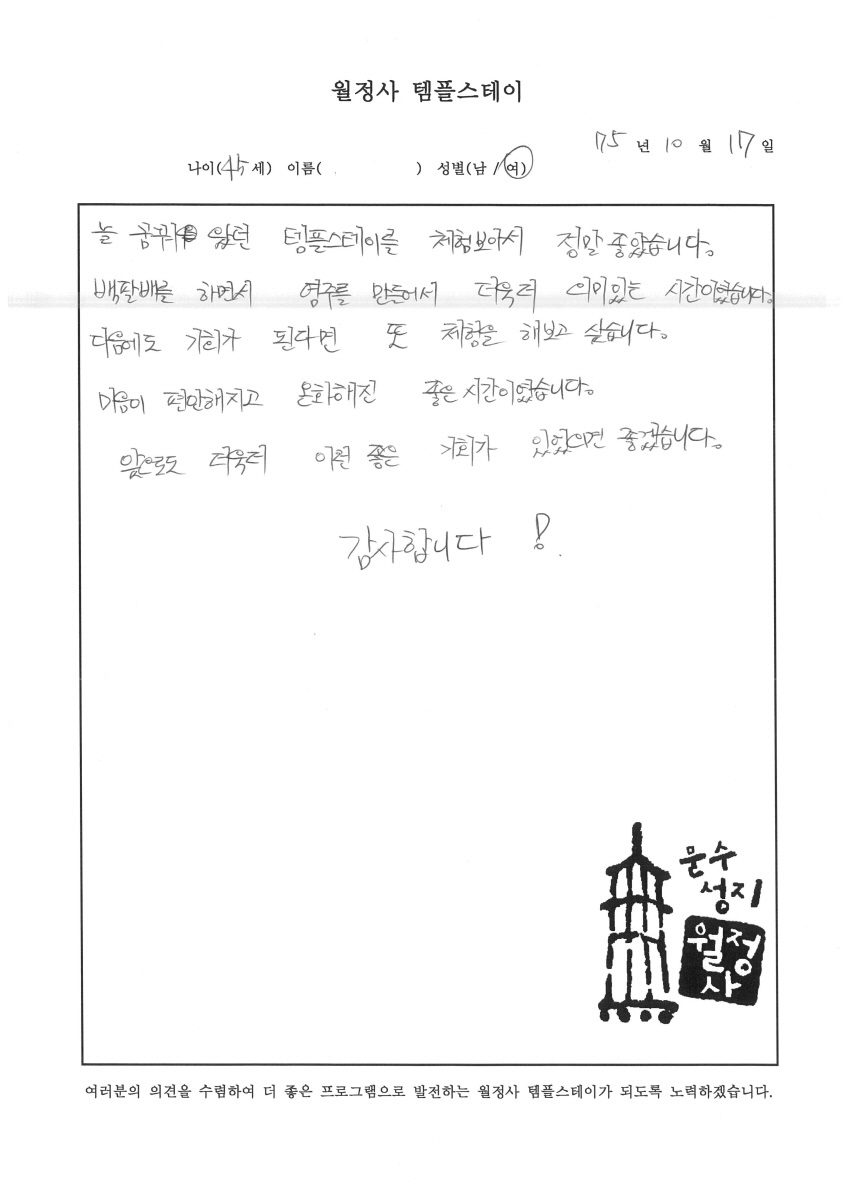 월정사 템플스테이
75 년 10 월 17 일
나이(45세) 이름( ) 성별(남 / 여)
늘 꿈꿔 왔던 템플스테이를 체험보아서 정말 좋았습니다.
백팔배를 하면서 염주를 만들어서 더욱더 의미있는 시간이였습니다.
다음에도 기회가 된다면 또 체험을 해보고 싶습니다.
마음이 편안해지고 온화해진 좋은 시간이였습니다.
앞으로도 더욱더 이런 좋은 기회가 있었으면 좋겠습니다.
감사합니다 !
문수
성지
월정
사
여러분의 의견을 수렴하여 더 좋은 프로그램으로 발전하는 월정사 템플스테이가 되도록 노력하겠습니다.